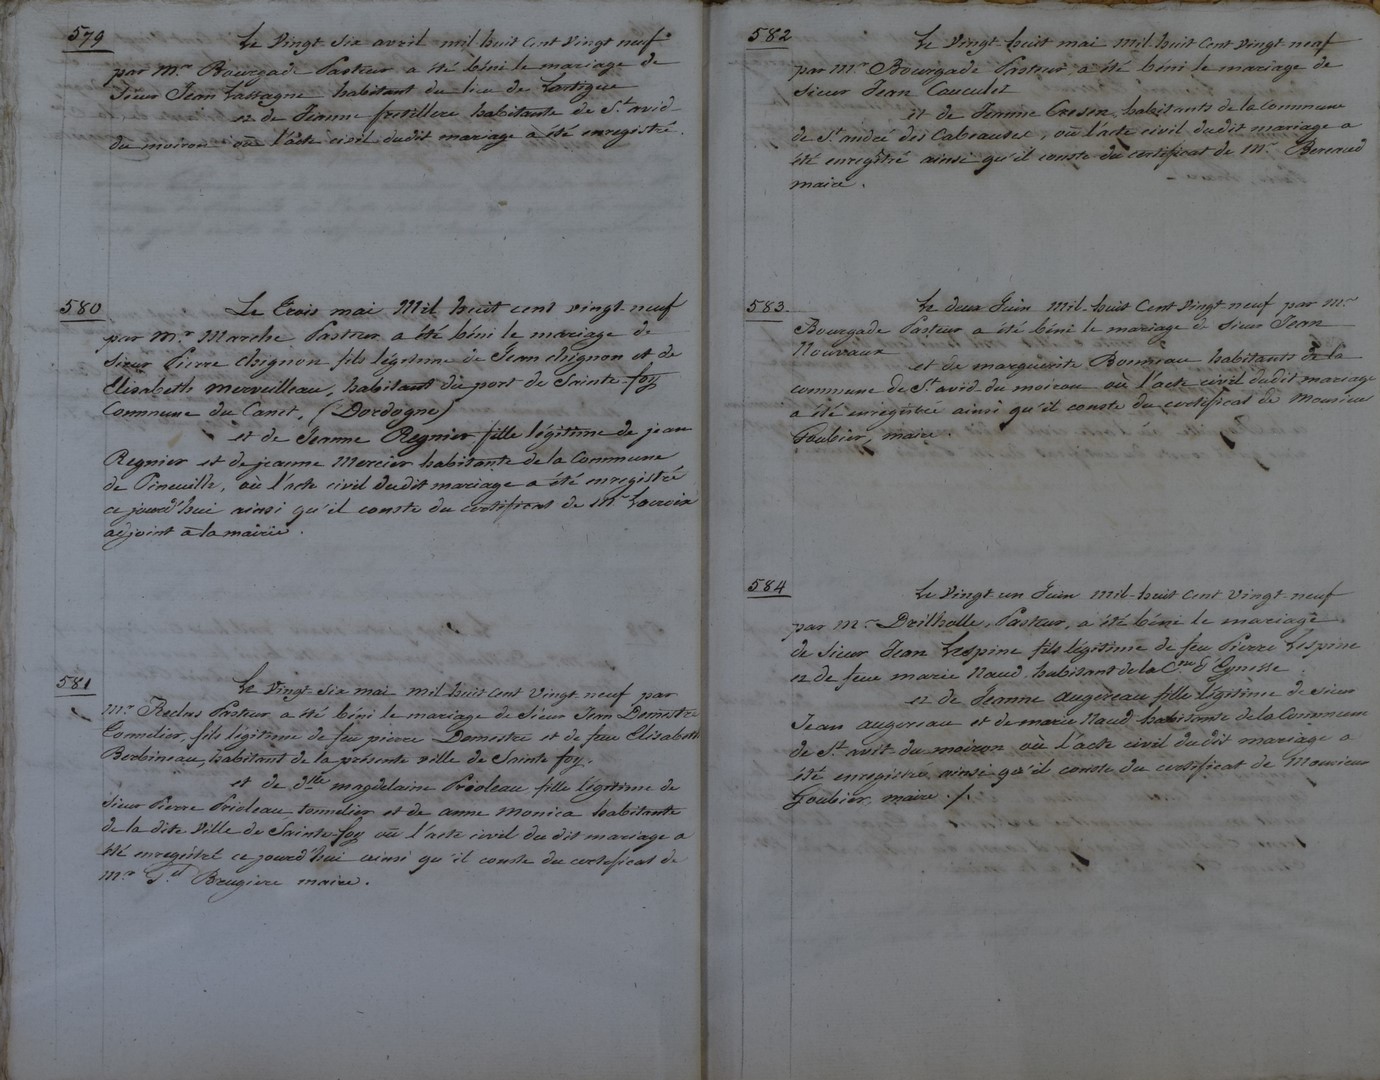 579
Le Vingt Six avril mil huit Cent Vingt neuf
par mr. Bourgade Pasteur a été béni le mariage de
Sieur Jean Lassagne habitant du lieu de Lartigue
et de Jeanne frutillere habitante de St. avid
du moiron où l'acte civil dudit mariage a été enregistré.
580
Le Trois mai Mil huit cent vingt-neuf
par mr. Marche Pasteur a été béni le mariage de
Sieur Pierre Chignon fils légitime de Jean Chignon et de
Elisabeth Merveilleau, habitant du port de Sainte-foy
Commune du Canet, (Dordogne)
et de Jeanne Regnier fille légitime de jean
Regnier et de jeanne Mercier habitante de la Commune
de Pineuille, où l'acte civil dudit mariage a été enregistré
ce jourd'hui ainsi qu'il conste du certificat de Mr. Lacroix
adjoint à la mairie.
581
Le Vingt-Six mai mil huit Cent Vingt neuf par
Mr. Reclus Pasteur a été béni le mariage de Sieur Jean Demestre
Tonnelier, fils légitime de feu pierre Demestre et de feue Elisabeth
Barbineau, habitant de la présente ville de Sainte foy.
et de dlle magdelaine Prioleau fille légitime de
Sieur Pierre Prioleau tonnelier et de anne Monica habitante
de la dite Ville de Sainte-foy où l'acte civil du dit mariage a
été enregistré ce jourd'hui ainsi qu'il conste du certificat de
Mr. Gd. Brugiere maire.
582
Le Vingt huit mai mil huit Cent Vingt neuf
par Mr Bourgade Pasteur a été béni le mariage de
Sieur Jean Cauculet
et de Jeanne habitants de la Commune
de St. andré des Cabeausse, où l'acte civil dudit mariage a
été enregistré ainsi qu'il conste du certificat de Mr.
maire.
583.
Le deux Juin Mil-huit Cent Vingt neuf par Mr
Bourgade Pasteur a été béni le mariage de Sieur Jean
Nouvaux
et de marguerite Bonneau habitants de la
commune de St. avid du moirou où l'acte civil dudit mariage
a été enregistré ainsi qu'il conste du certificat de Monsieur
Goubier, maire.
584
Le Vingt un Juin Mil-huit Cent Vingt-neuf
par Mr. Drilholle, Pasteur, a été béni le mariage
de Sieur Jean Lespine fils légitime de feu Pierre Lespine
et de feue marie Naud, habitant de la Cne d'Eynesse
et de Jeanne augereau fille légitime de Sieur
Jean augereau et de marie Naud habitante de la Commune
de St. avit du moiron où l'acte civil dudit mariage a
été enregistré ainsi qu'il conste du certificat de Monsieur
Goubier, maire ./.